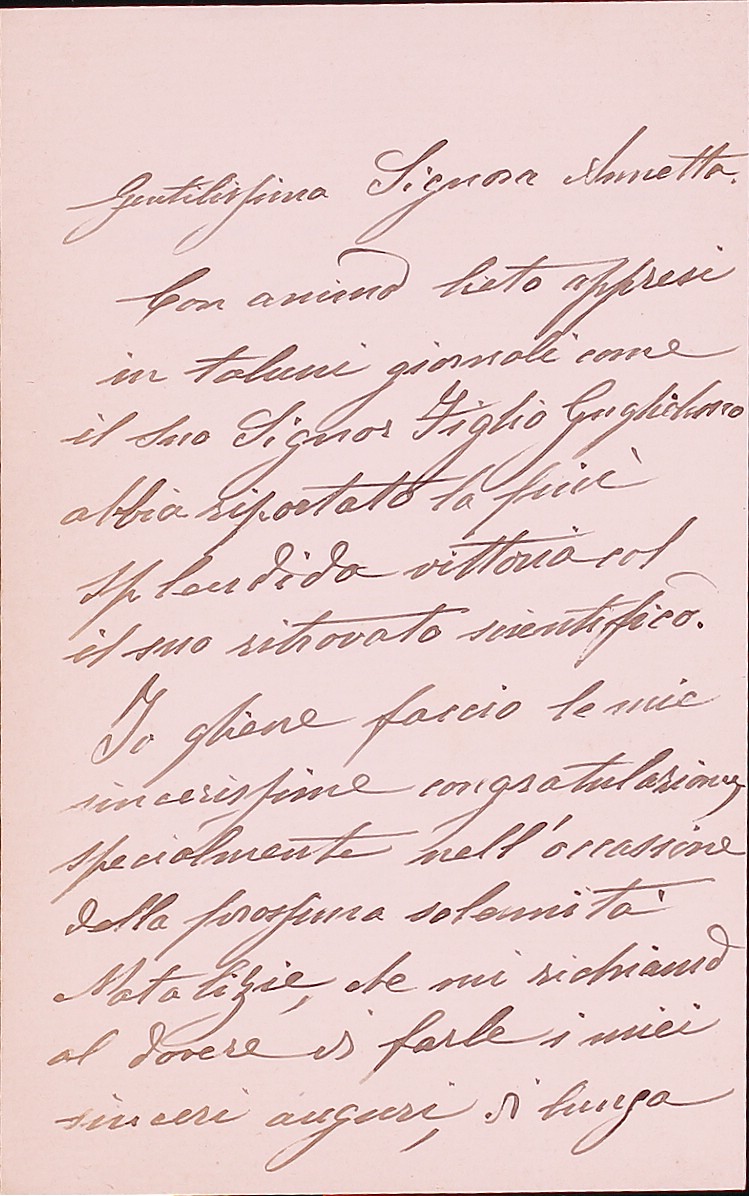 Gentilissima Signora Annetta.
Con animo lieto appresi
in taluni giornali come
il suo Signor Figlio Guglielmo
abbia riportato la più
splendida vittoria col
il suo ritrovato scientifico.
Io gliene faccio le mie
sincerissime congratulazioni,
specialmente nell'occassione
della prossima solennità
Natalizie, che mi richiamo
al dovere di farle i miei
sinceri auguri, di lunga